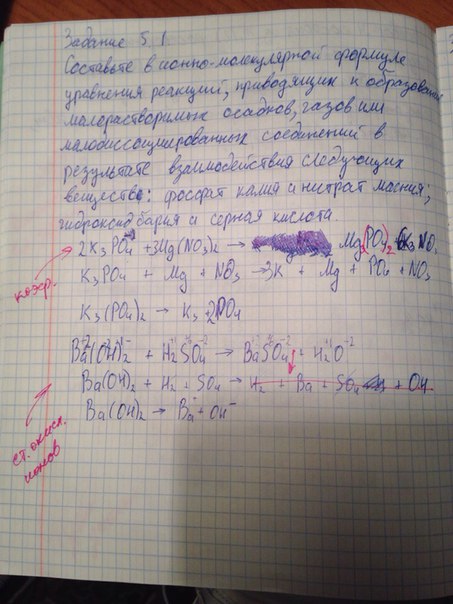 Задание 5.1.
Составьте в ионно-молекулярной формуле
уравнения реакций, приводящих к образованию
малорастворимых осадков, газов или
малодиссоциированных соединений в
результате взаимодействия следующих
веществ: фосфат калия и нитрат магния,
гидроксид бария и серная кислота.
2K3PO4 + 3Mg(NO3)2 → Mg3(PO4)2 6KNO3
коэф.
K3PO4 + Mg + NO3 → 3K + Mg + PO4 + NO3
K3(PO4)2 → K3 + 2PO4
Ba(OH)2 + H2SO4 → BaSO4↓ + H2O
Ba(OH)2 + H2 + SO4 → H2 + Ba + SO4 + OH
Ba(OH)2 → Ba + OH-
ст. окисл.
ионов